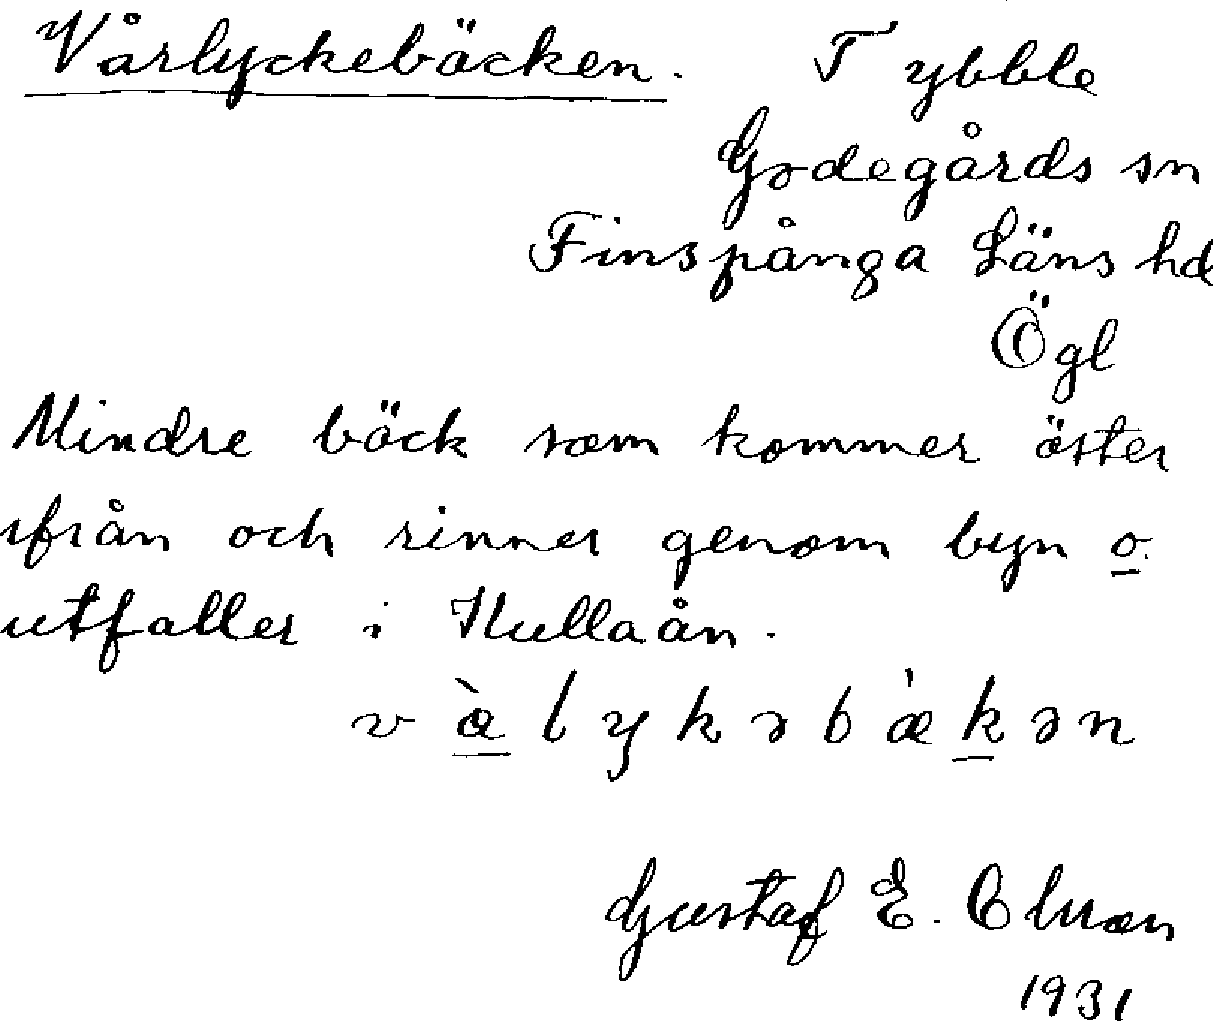 Vårlyckebäcken. Tybble
Godegårds sn
Finspånga Läns hd
Ögl
Mindre bäck som kommer öster
ifrån och rinner genom byn o.
utfaller i Hullaån.
v à l y k ə b ä k ə n
Gustaf E.
1931